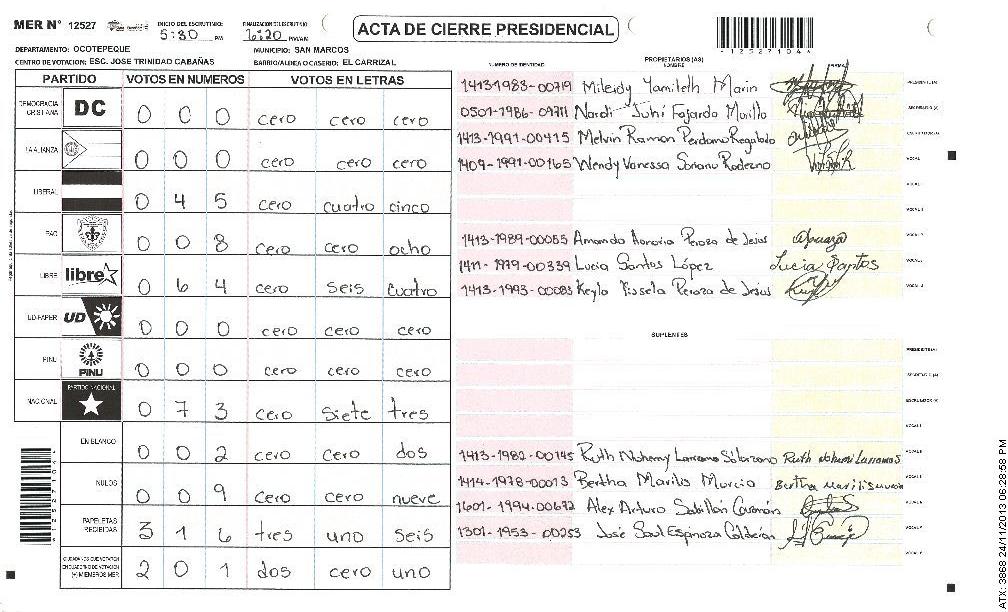 MER N° 12527 INICIO DEL ESCRUTINIO: 5:30 PM FINALIZACION DEL ESCRUTINIO 6:20 PM/AM ACTA DE CIERRE PRESIDENCIAL
1252710 4
DEPARTAMENTO: OCOTEPEQUE MUNICIPIO: SAN MARCOS
CENTRO DE VOTACION: ESC. JOSE TRINIDAD CABAÑAS BARRIO/ALDEA O CASERIO: EL CARRIZAL
PARTIDO VOTOS EN NUMEROS VOTOS EN LETRAS
DEMOCRACIA CRISTIANA DC 0 0 0 cero cero cero
LA ALIANZA 0 0 0 cero cero cero
LIBERAL 0 4 5 cero cuatro cinco
PAC 0 0 8 cero cero ocho
LIBRE libre 0 6 4 cero seis cuatro
UD-FAPER UD 0 0 0 cero cero cero
PINU PINU 0 0 0 cero cero cero
NACIONAL PARTIDO NACIONAL 0 7 3 cero siete tres
EN BLANCO 0 0 2 cero cero dos
NULOS 0 0 9 cero cero nueve
PAPELETAS RECIBIDAS 3 1 6 tres uno seis
CIUDADANOS QUE VOTARON EN CUADERNO DE VOTACION (+) MIEMBROS MER 2 0 1 dos cero uno
PROPIETARIOS (AS)
NUMERO DE IDENTIDAD NOMBRE FIRMA
1413-1983-00719 Mileidy Yamileth Marin PRESIDENTE (A)
0501-1986-09711 Nardi Juhi Fajardo Murillo SECRETARIO (A)
1413-1991-00415 Melvin Ramon Perdomo Regalado ESCRUTADOR (A)
1409-1991-00165 Wendy Vanessa Soriano Rodezno VOCAL
1413-1989-00055 Amanda Honoria Peroza de Jesus
1411-1979-00339 Lucia Santos López Lucia Santos
1413-1993-00083 Keyla Yissela Peroza de Jesus
SUPLENTES
PRESIDENTE (A)
SECRETARIO (A)
ESCRUTADOR (A)
1413-1982-00145 Ruth Nohemy Larromo Solorzano
1414-1978-00013 Bertha Marilu Murcia
1601-1994-00672 Alex Arturo Sabillón Guzmán
1301-1953-00253 José Saul Espinoza Calderón
ATX: 3868 24/11/2013 06:28:58 PM